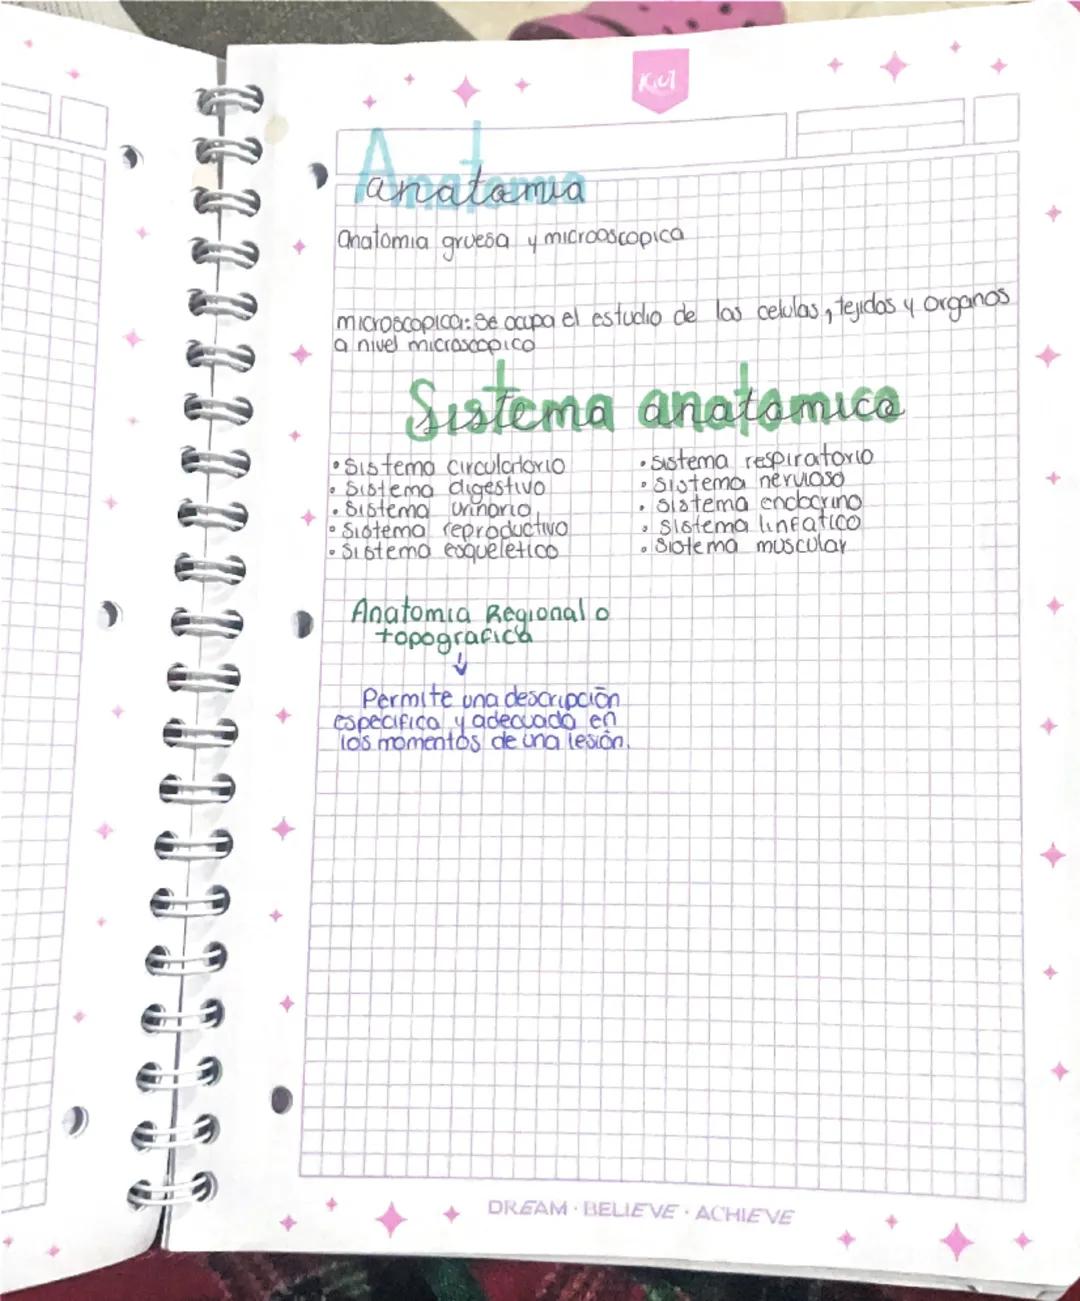 Kiut
Anatomia
anatomia
Anatomia gruesa y microoscopica
microscopica: Se ocupa el estudio de las celulas, tejidos y organos
a nivel microscopico
Sistema anatomico
• Sistema circulatorio
• Sistema digestivo
• Sistema urinario
• Sistema reproductivo
• Sistema esqueletico
• Sistema respiratorio
• Sistema nervioso
• Sistema endocrino
• Sistema linfatico
• Sistema muscular
Anatomia Regional o
topografica
↓
Permite una descripción
especifica y adecuada en
los momentos de una lesión.
DREAM · BELIEVE · ACHIEVE